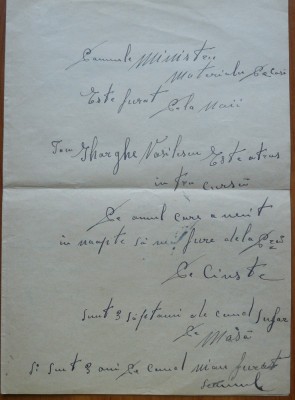 Domnule Ministru
Materialu Ce Casi
Este furat Cela Maii
Ion Gharghe Vasilescu Este atras
in tro cursă
De omul care a venit
in noapte să mi fure dela
De Cinste
sunt 3 săptami de cand sufar
De Mădă
Si sunt 3 ani De cand miau furat